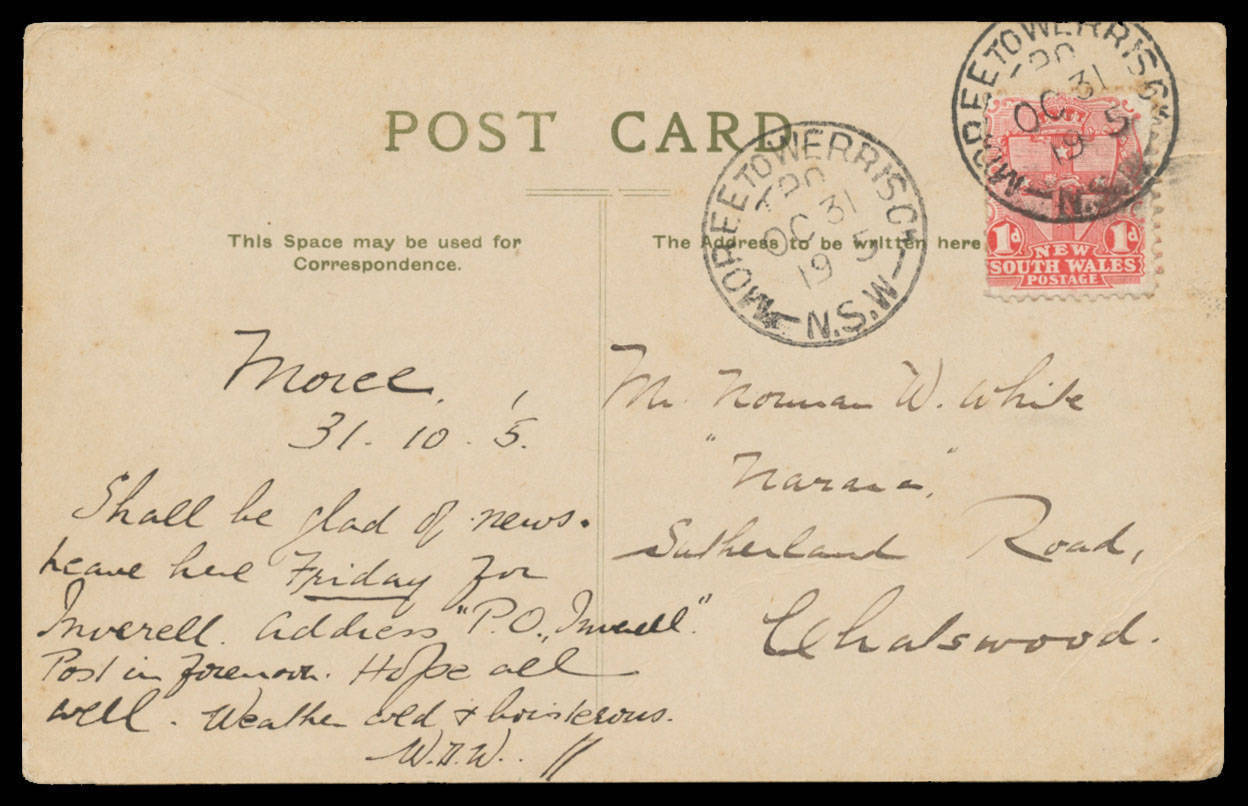 POST CARD
This Space may be used for
Correspondence.
The Address to be written here
MOREE TOWERRIS CK
TPO
OC 31
19 5
N.S.W
MOREE TOWERRIS CK
TPO
OC 31
19 5
N.S.W
1d 1d
NEW
SOUTH WALES
POSTAGE
Moree,
31. 10. 5.
Shall be glad of news.
Leave here Friday for
Inverell. Address "P.O., Inverell."
Post in forenoon. Hope all
well. Weather cold & boisterous.
Mr. Norman W. White
Sutherland Road,
Chatswood.